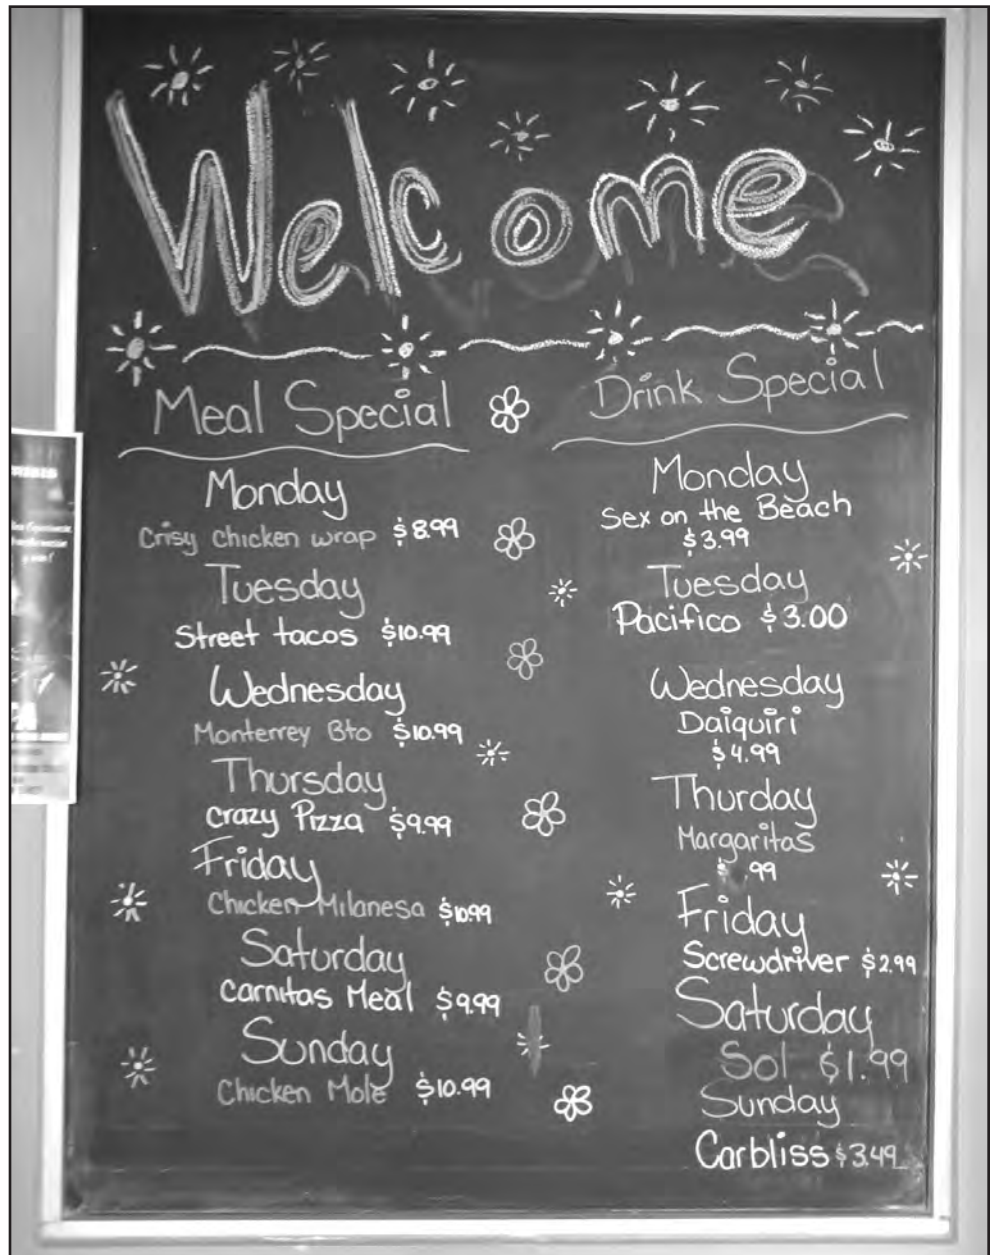 Welcome
Meal Special
Monday
Crisy chicken wrap $8.99
Tuesday
Street tacos $10.99
Wednesday
Monterrey Bto $10.99
Thursday
Crazy Pizza $9.99
Friday
Chicken Milanesa $10.99
Saturday
Carnitas Meal $9.99
Sunday
Chicken Mole $10.99
Drink Special
Monday
Sex on the Beach
$3.99
Tuesday
Pacifico $3.00
Wednesday
Daiquiri
$4.99
Thurday
Margaritas
$ .99
Friday
Screwdriver $2.99
Saturday
Sol $1.99
Sunday
Carbliss $3.49